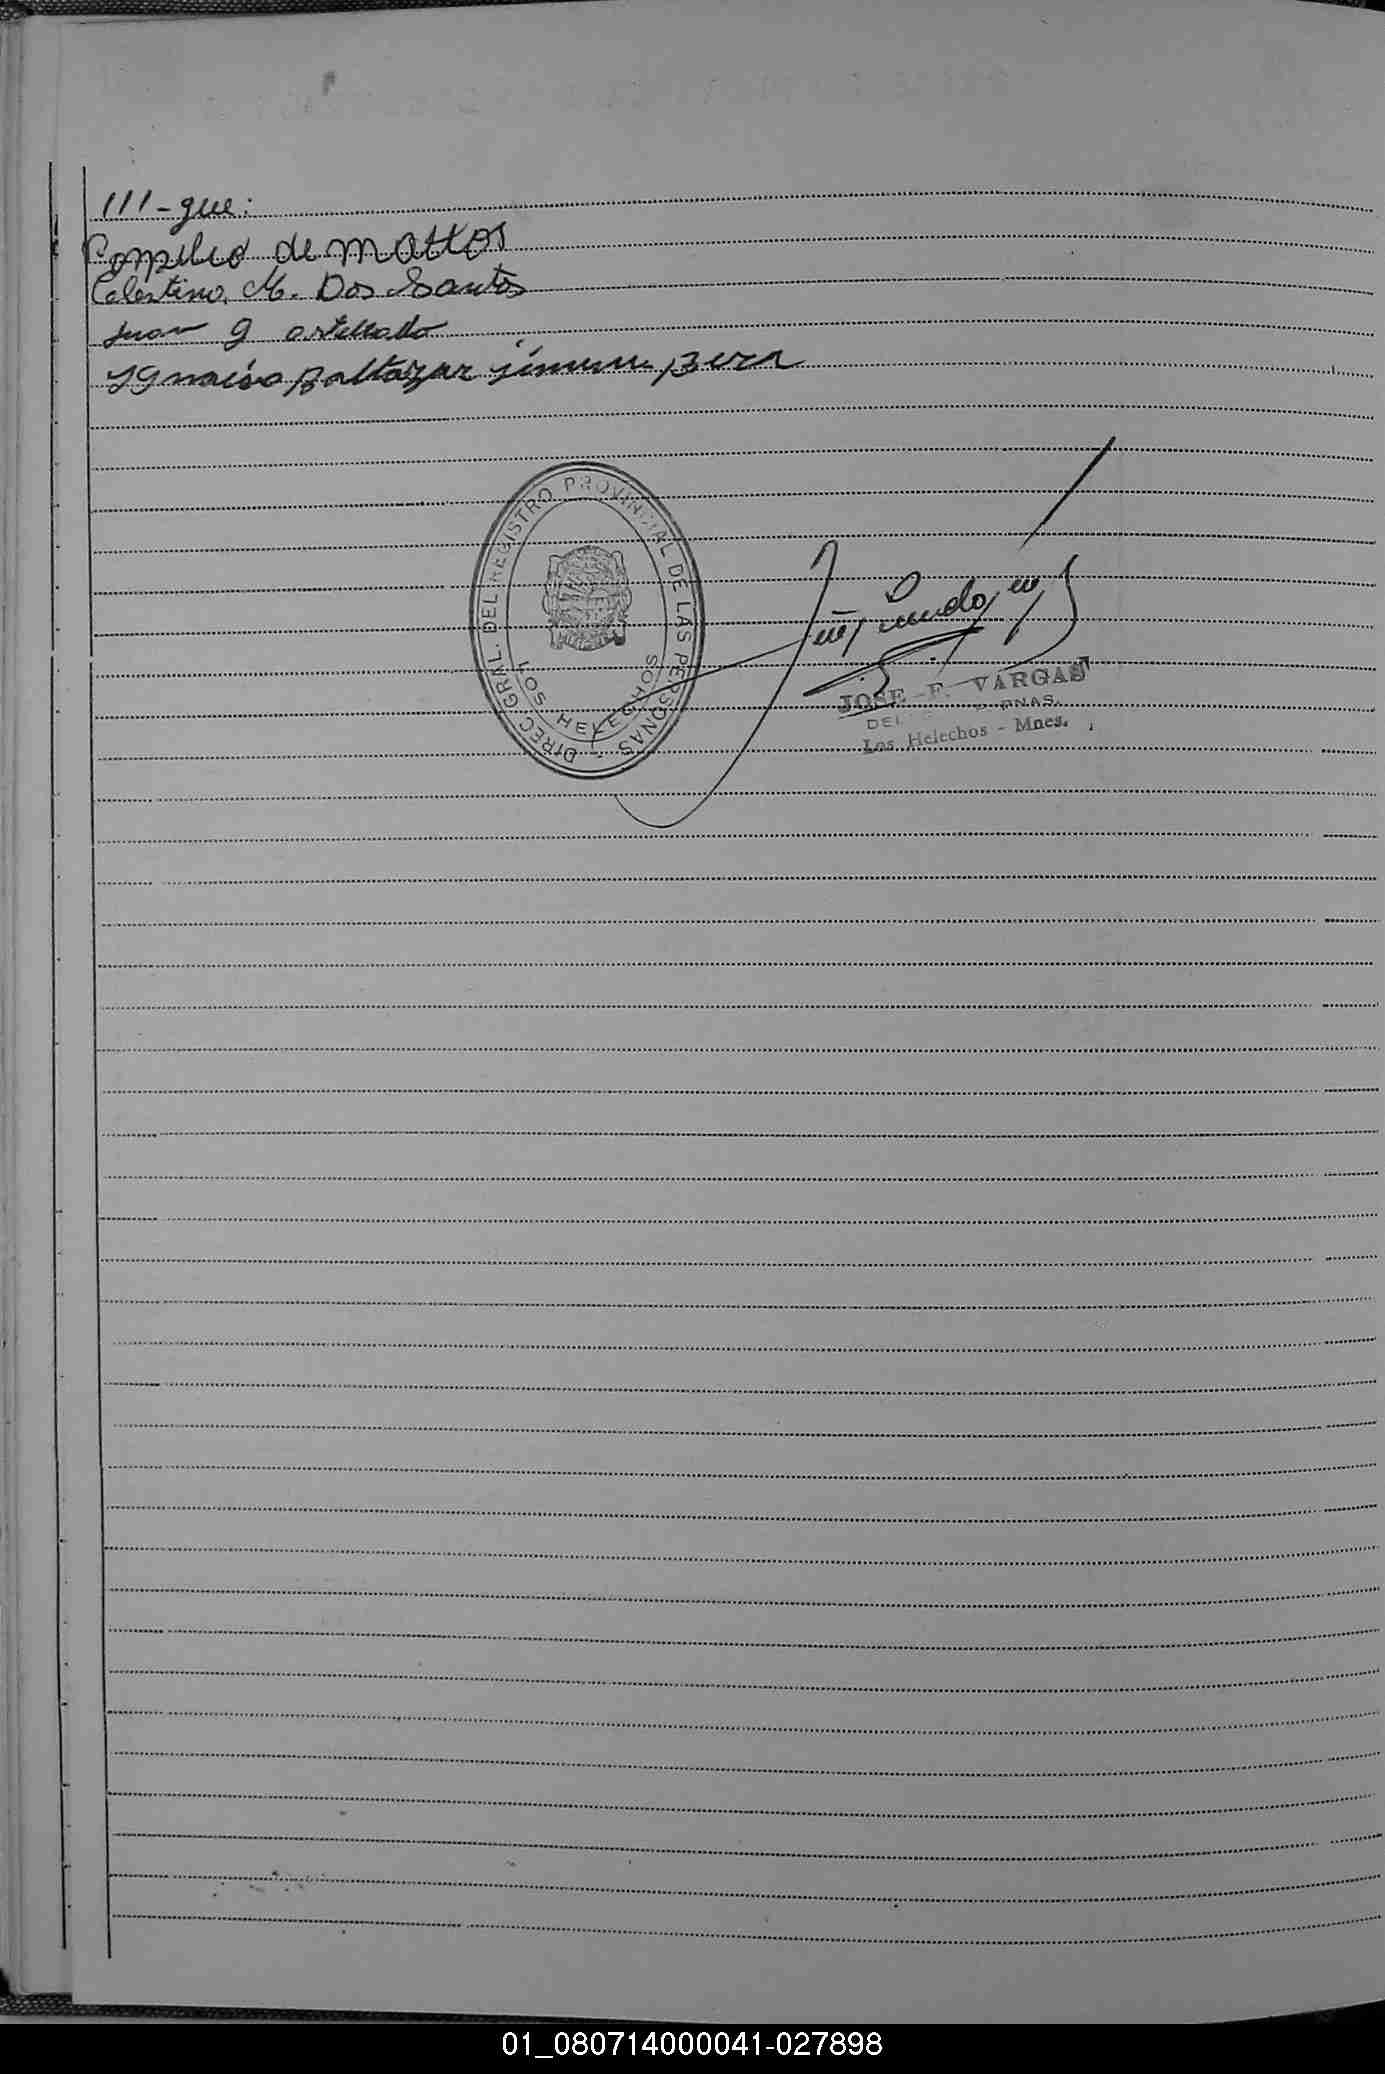 111-gue:
Pompilio de mattos
Celestino M. Dos Santos
Juan g
Ygnasio Baltazar
DIREC. GRAL. DEL REGISTRO PROVINCIAL DE LAS PERSONAS
LOS HELECHOS
JOSE F. VARGAS
DEL
Los Helechos - Mnes.
01_080714000041-027898